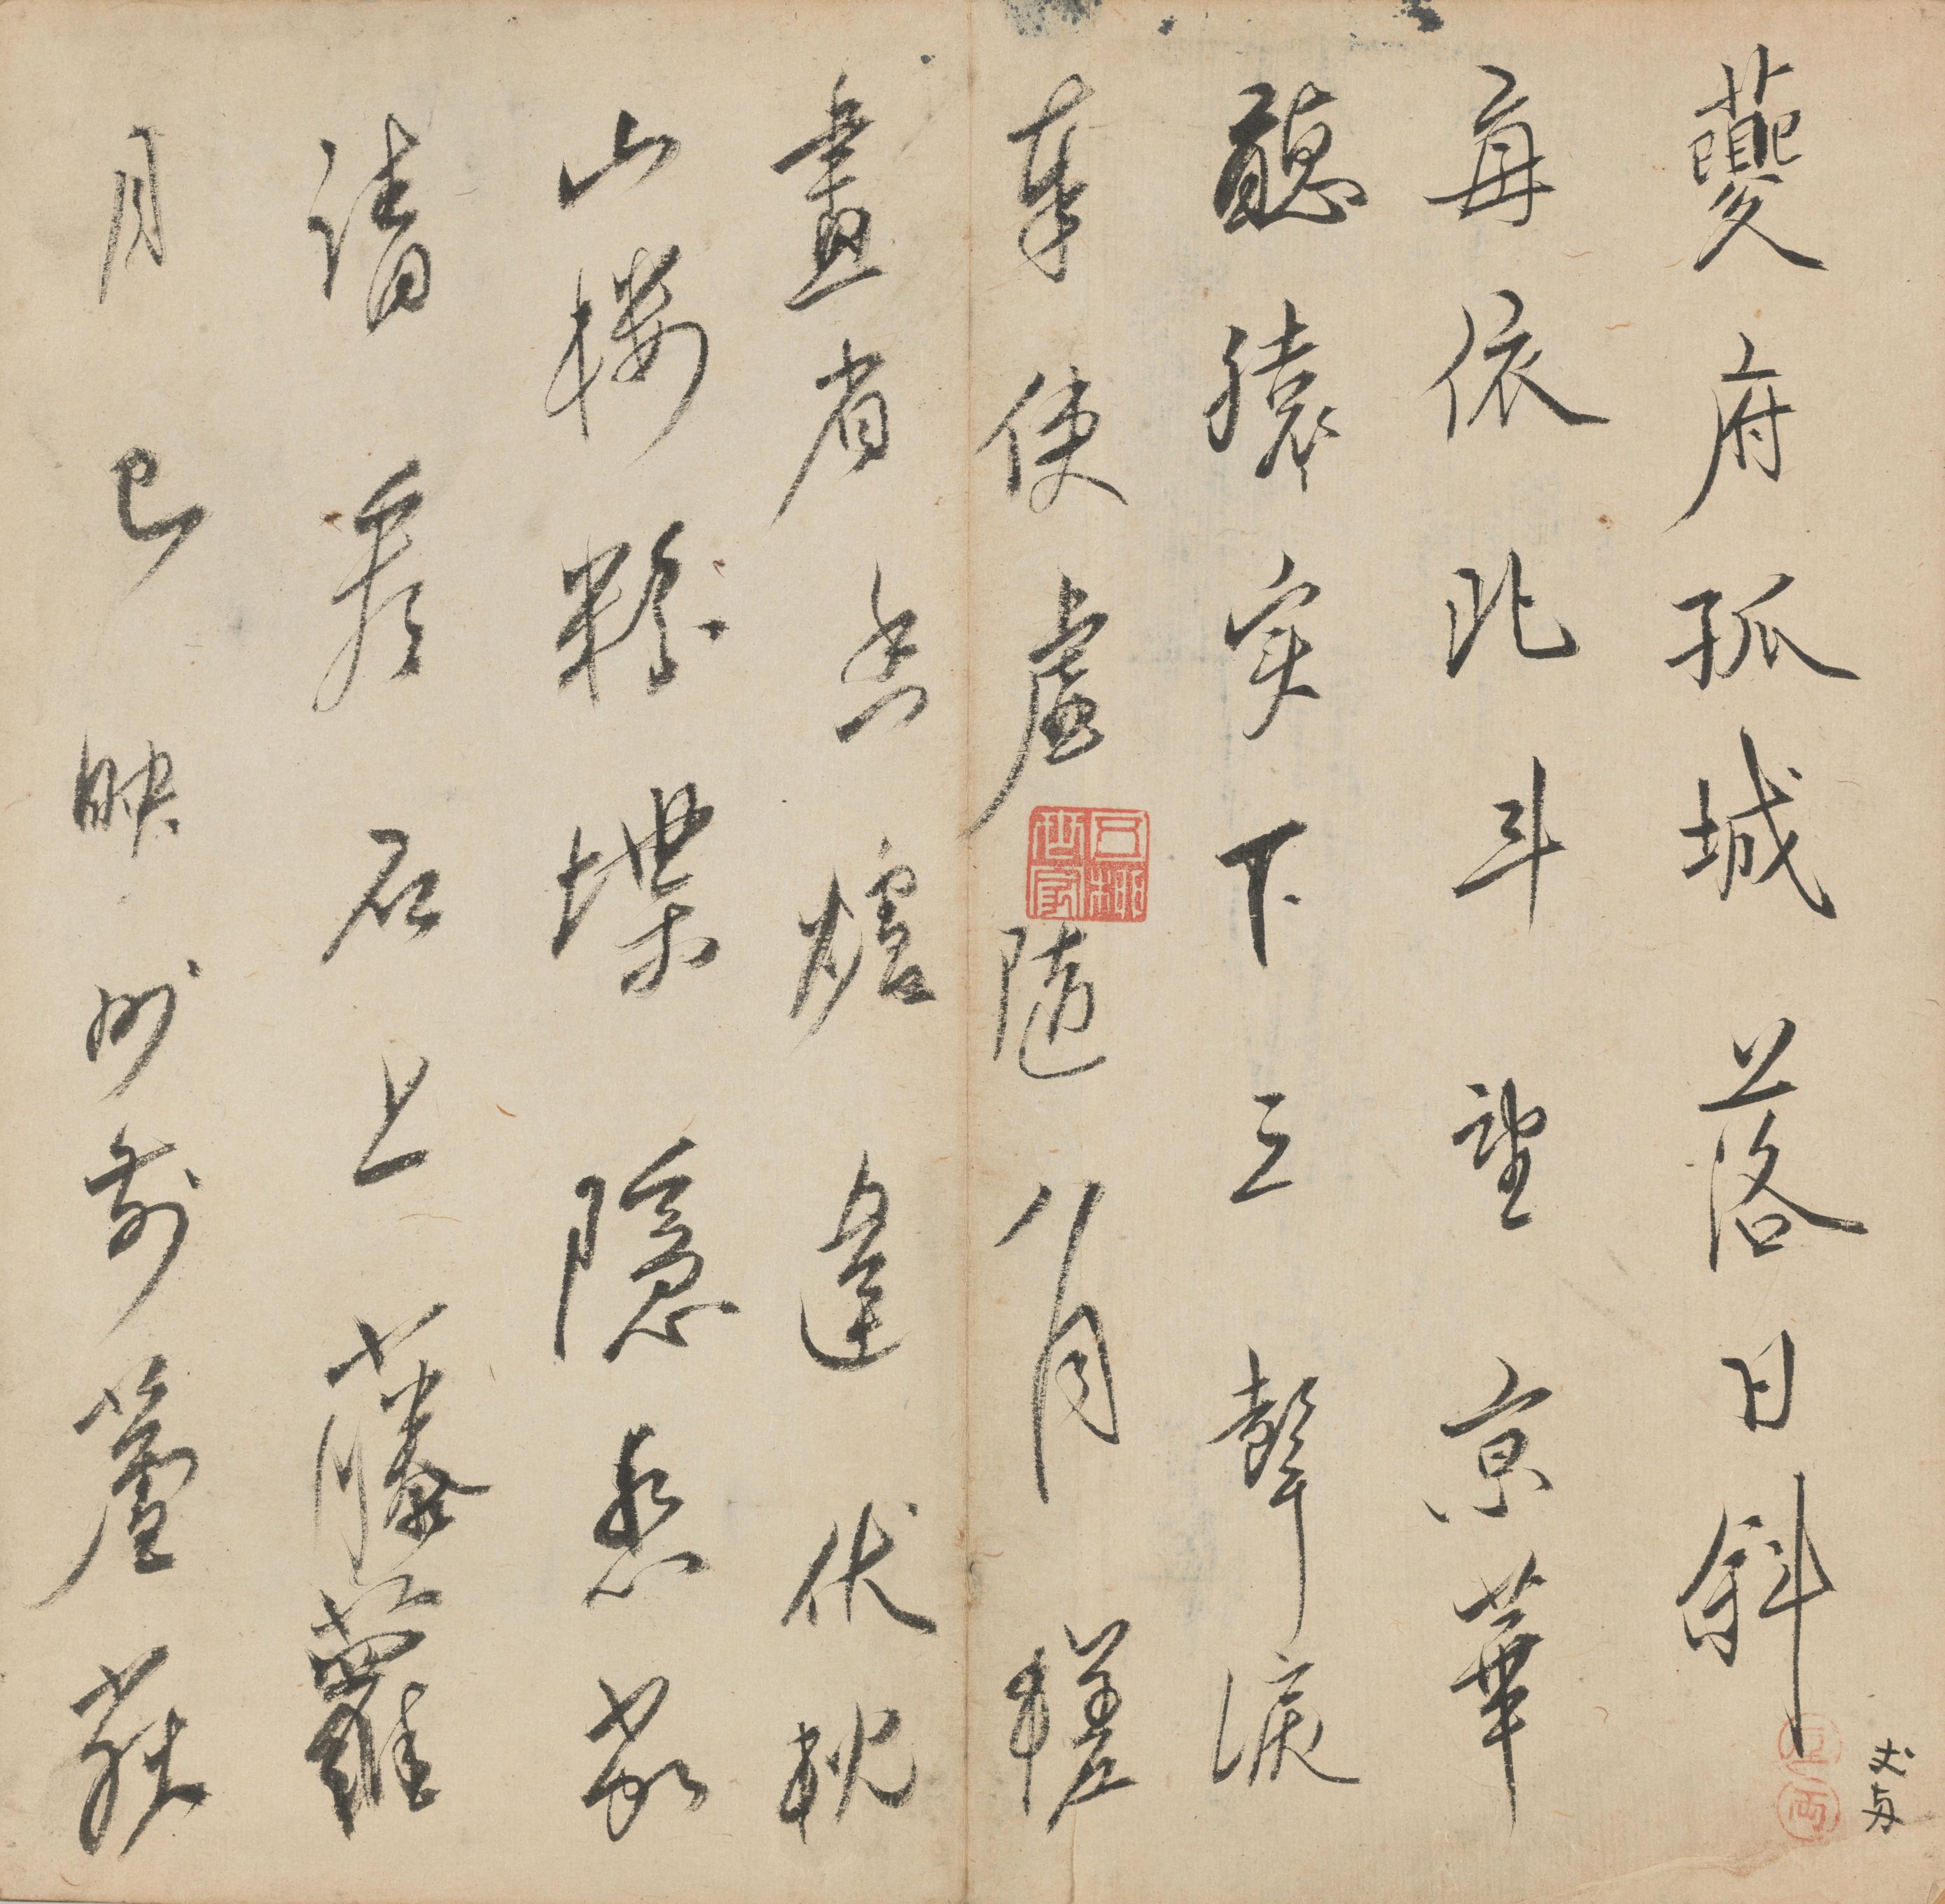 夔府孤城落日斜
每依北斗望京華
聽猿实下三聲淚
奉使虛隨八月槎
畫省香爐違伏枕
山樓粉堞隱悲笳
請看石上藤蘿
月已映洲前蘆荻